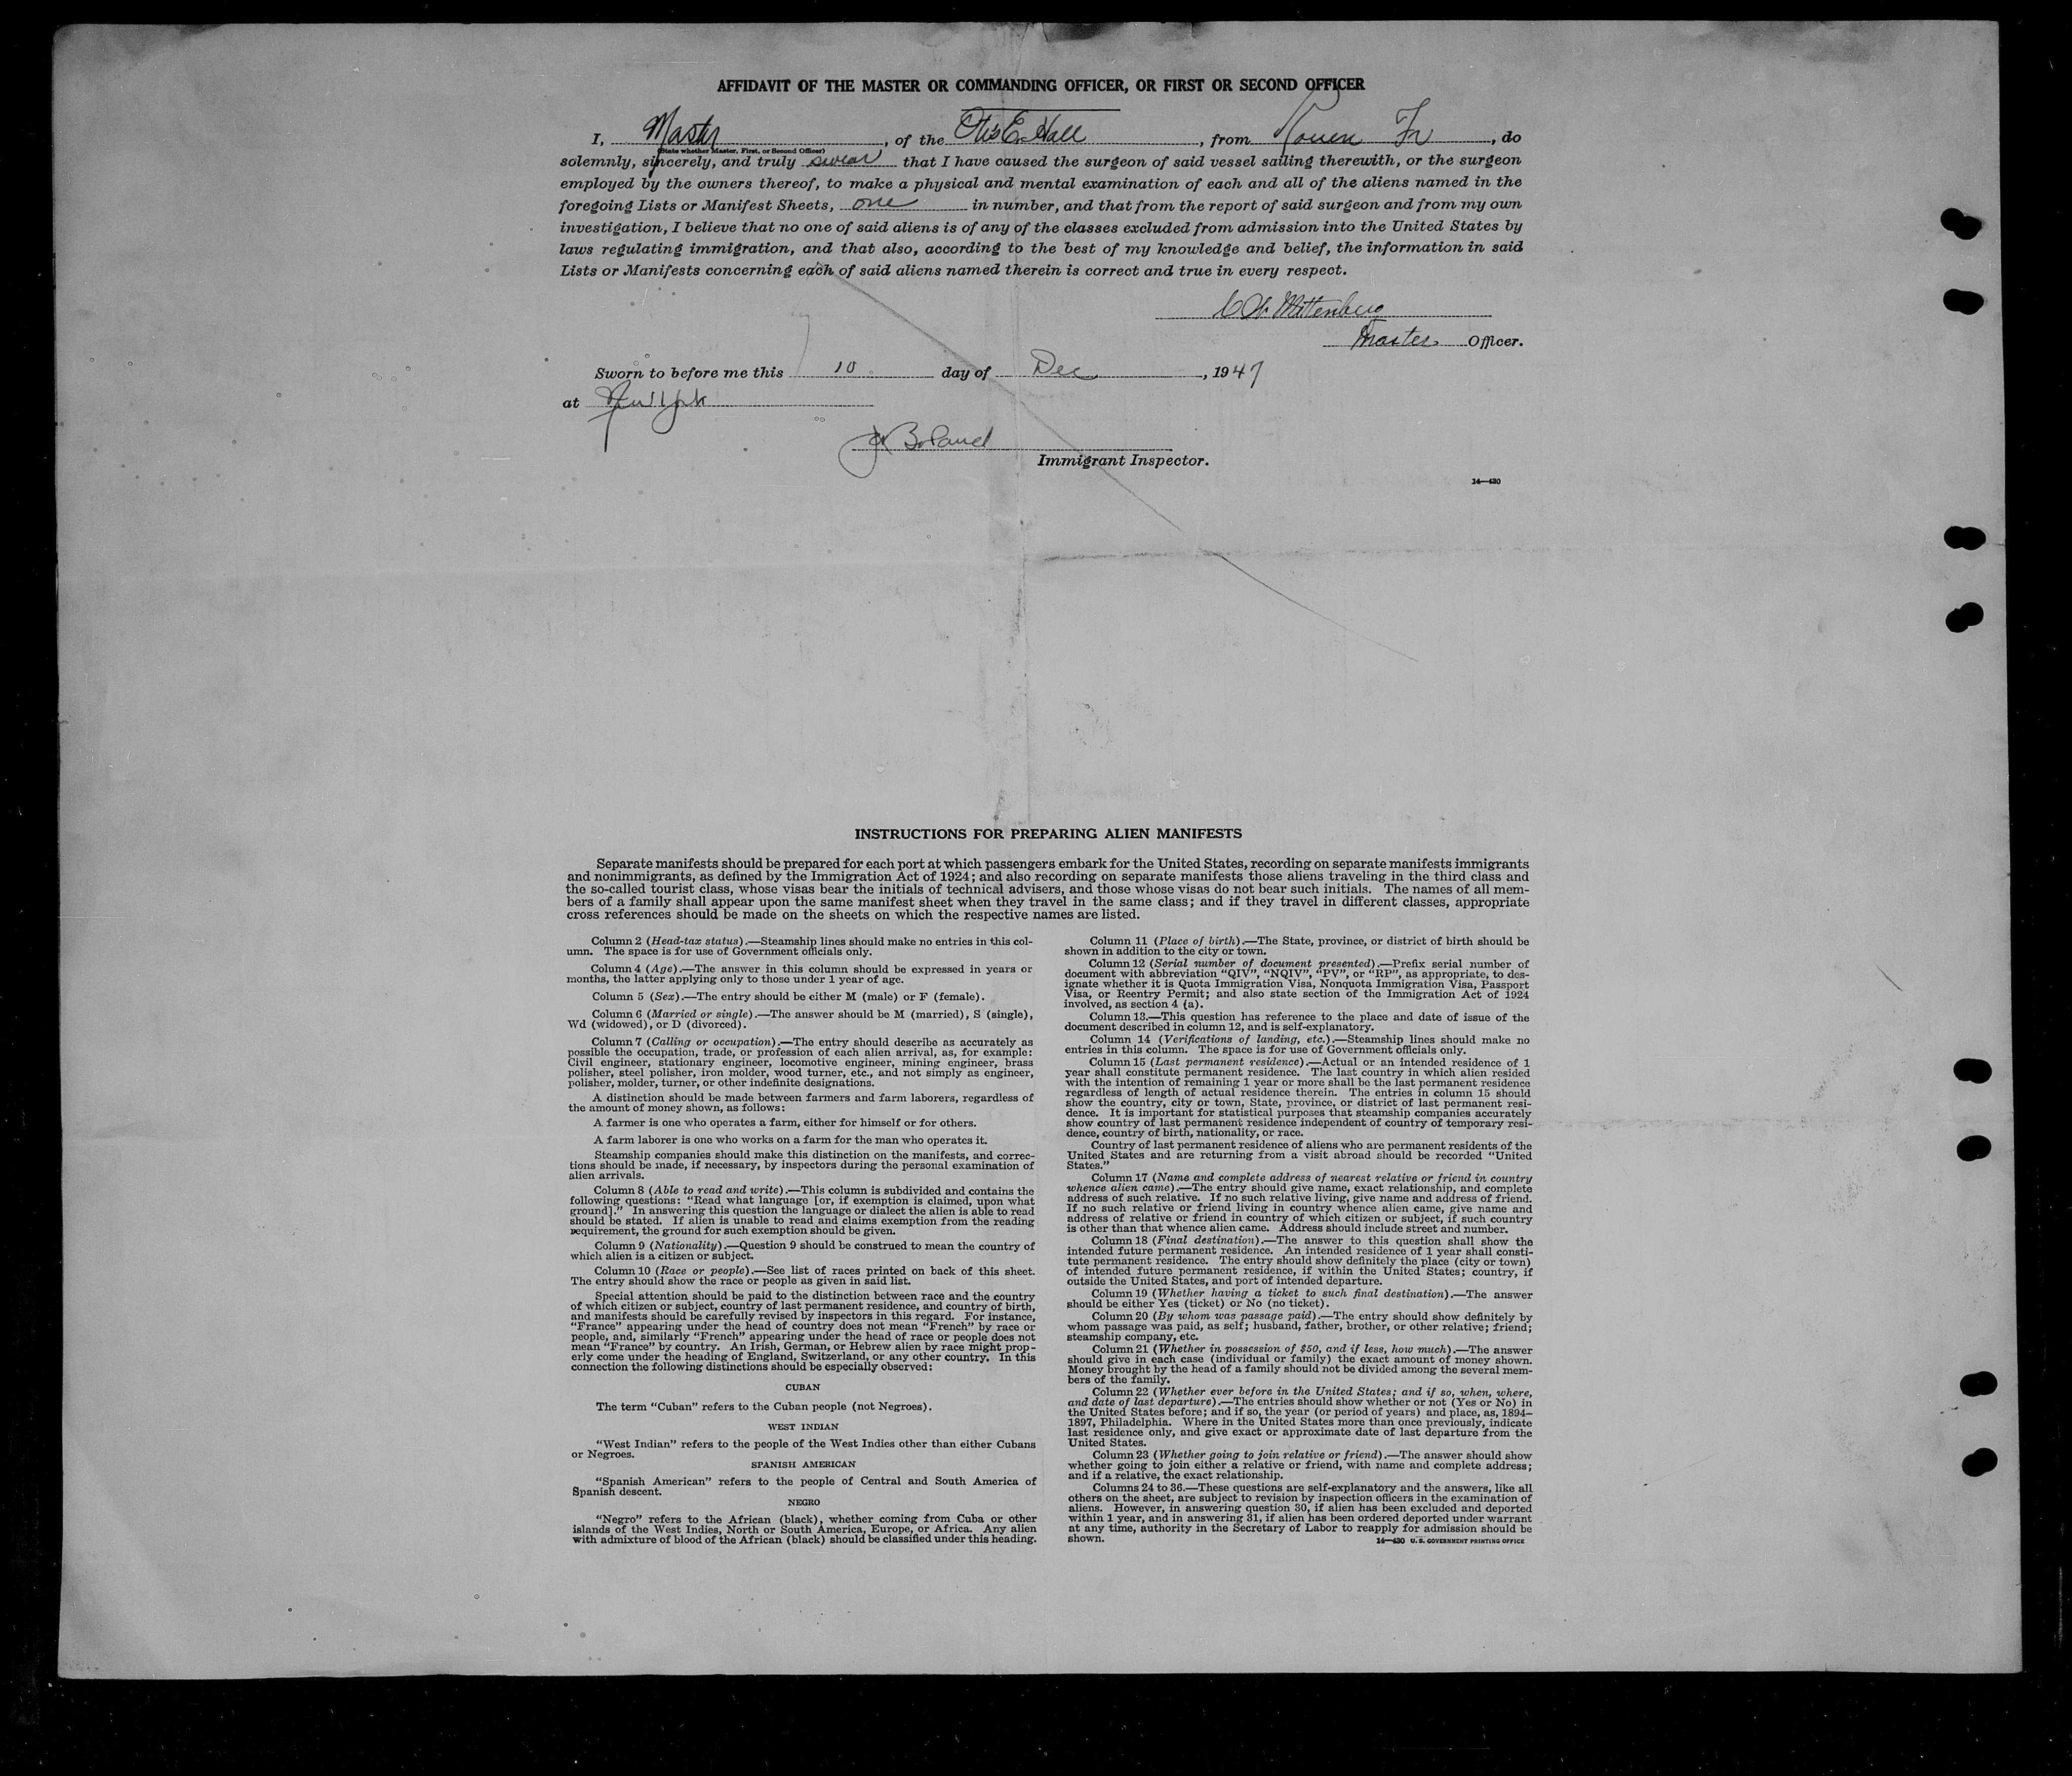 AFFIDAVIT OF THE MASTER OR COMMANDING OFFICER, OR FIRST OR SECOND OFFICER
I, Master, of the Otis E. Hall, from Rouen Fr, do
(State whether Master, First, or Second Officer)
solemnly, sincerely, and truly swear that I have caused the surgeon of said vessel sailing therewith, or the surgeon
employed by the owners thereof, to make a physical and mental examination of each and all of the aliens named in the
foregoing Lists or Manifest Sheets, one in number, and that from the report of said surgeon and from my own
investigation, I believe that no one of said aliens is of any of the classes excluded from admission into the United States by
laws regulating immigration, and that also, according to the best of my knowledge and belief, the information in said
Lists or Manifests concerning each of said aliens named therein is correct and true in every respect.
Mittenberg
Master Officer.
Sworn to before me this 10 day of Dec, 1947
at New York
Boland
Immigrant Inspector.
14—430
INSTRUCTIONS FOR PREPARING ALIEN MANIFESTS
Separate manifests should be prepared for each port at which passengers embark for the United States, recording on separate manifests immigrants
and nonimmigrants, as defined by the Immigration Act of 1924; and also recording on separate manifests those aliens traveling in the third class and
the so-called tourist class, whose visas bear the initials of technical advisers, and those whose visas do not bear such initials. The names of all mem-
bers of a family shall appear upon the same manifest sheet when they travel in the same class; and if they travel in different classes, appropriate
cross references should be made on the sheets on which the respective names are listed.
Column 2 (Head-tax status).—Steamship lines should make no entries in this col-
umn. The space is for use of Government officials only.
Column 4 (Age).—The answer in this column should be expressed in years or
months, the latter applying only to those under 1 year of age.
Column 5 (Sex).—The entry should be either M (male) or F (female).
Column 6 (Married or single).—The answer should be M (married), S (single),
Wd (widowed), or D (divorced).
Column 7 (Calling or occupation).—The entry should describe as accurately as
possible the occupation, trade, or profession of each alien arrival, as, for example:
Civil engineer, stationary engineer, locomotive engineer, mining engineer, brass
polisher, steel polisher, iron molder, wood turner, etc., and not simply as engineer,
polisher, molder, turner, or other indefinite designations.
A distinction should be made between farmers and farm laborers, regardless of
the amount of money shown, as follows:
A farmer is one who operates a farm, either for himself or for others.
A farm laborer is one who works on a farm for the man who operates it.
Steamship companies should make this distinction on the manifests, and correc-
tions should be made, if necessary, by inspectors during the personal examination of
alien arrivals.
Column 8 (Able to read and write).—This column is subdivided and contains the
following questions: “Read what language [or, if exemption is claimed, upon what
ground].” In answering this question the language or dialect the alien is able to read
should be stated. If alien is unable to read and claims exemption from the reading
requirement, the ground for such exemption should be given.
Column 9 (Nationality).—Question 9 should be construed to mean the country of
which alien is a citizen or subject.
Column 10 (Race or people).—See list of races printed on back of this sheet.
The entry should show the race or people as given in said list.
Special attention should be paid to the distinction between race and the country
of which citizen or subject, country of last permanent residence, and country of birth,
and manifests should be carefully revised by inspectors in this regard. For instance,
“France” appearing under the head of country does not mean “French” by race or
people, and, similarly “French” appearing under the head of race or people does not
mean “France” by country. An Irish, German, or Hebrew alien by race might prop-
erly come under the heading of England, Switzerland, or any other country. In this
connection the following distinctions should be especially observed:
CUBAN
The term “Cuban” refers to the Cuban people (not Negroes).
WEST INDIAN
“West Indian” refers to the people of the West Indies other than either Cubans
or Negroes.
SPANISH AMERICAN
“Spanish American” refers to the people of Central and South America of
Spanish descent.
NEGRO
“Negro” refers to the African (black), whether coming from Cuba or other
islands of the West Indies, North or South America, Europe, or Africa. Any alien
with admixture of blood of the African (black) should be classified under this heading.
Column 11 (Place of birth).—The State, province, or district of birth should be
shown in addition to the city or town.
Column 12 (Serial number of document presented).—Prefix serial number of
document with abbreviation “QIV”, “NQIV”, “PV”, or “RP”, as appropriate, to des-
ignate whether it is Quota Immigration Visa, Nonquota Immigration Visa, Passport
Visa, or Reentry Permit; and also state section of the Immigration Act of 1924
involved, as section 4 (a).
Column 13.—This question has reference to the place and date of issue of the
document described in column 12, and is self-explanatory.
Column 14 (Verifications of landing, etc.).—Steamship lines should make no
entries in this column. The space is for use of Government officials only.
Column 15 (Last permanent residence).—Actual or an intended residence of 1
year shall constitute permanent residence. The last country in which alien resided
with the intention of remaining 1 year or more shall be the last permanent residence
regardless of length of actual residence therein. The entries in column 15 should
show the country, city or town, State, province, or district of last permanent resi-
dence. It is important for statistical purposes that steamship companies accurately
show country of last permanent residence independent of country of temporary resi-
dence, country of birth, nationality, or race.
Country of last permanent residence of aliens who are permanent residents of the
United States and are returning from a visit abroad should be recorded “United
States.”
Column 17 (Name and complete address of nearest relative or friend in country
whence alien came).—The entry should give name, exact relationship, and complete
address of such relative. If no such relative living, give name and address of friend.
If no such relative or friend living in country whence alien came, give name and
address of relative or friend in country of which citizen or subject, if such country
is other than that whence alien came. Address should include street and number.
Column 18 (Final destination).—The answer to this question shall show the
intended future permanent residence. An intended residence of 1 year shall consti-
tute permanent residence. The entry should show definitely the place (city or town)
of intended future permanent residence, if within the United States; country, if
outside the United States, and port of intended departure.
Column 19 (Whether having a ticket to such final destination).—The answer
should be either Yes (ticket) or No (no ticket).
Column 20 (By whom was passage paid).—The entry should show definitely by
whom passage was paid, as self; husband, father, brother, or other relative; friend;
steamship company, etc.
Column 21 (Whether in possession of $50, and if less, how much).—The answer
should give in each case (individual or family) the exact amount of money shown.
Money brought by the head of a family should not be divided among the several mem-
bers of the family.
Column 22 (Whether ever before in the United States; and if so, when, where,
and date of last departure).—The entries should show whether or not (Yes or No) in
the United States before; and if so, the year (or period of years) and place, as, 1894–
1897, Philadelphia. Where in the United States more than once previously, indicate
last residence only, and give exact or approximate date of last departure from the
United States.
Column 23 (Whether going to join relative or friend).—The answer should show
whether going to join either a relative or friend, with name and complete address;
and if a relative, the exact relationship.
Columns 24 to 36.—These questions are self-explanatory and the answers, like all
others on the sheet, are subject to revision by inspection officers in the examination of
aliens. However, in answering question 30, if alien has been excluded and deported
within 1 year, and in answering 31, if alien has been ordered deported under warrant
at any time, authority in the Secretary of Labor to reapply for admission should be
shown.
14—430 U. S. GOVERNMENT PRINTING OFFICE